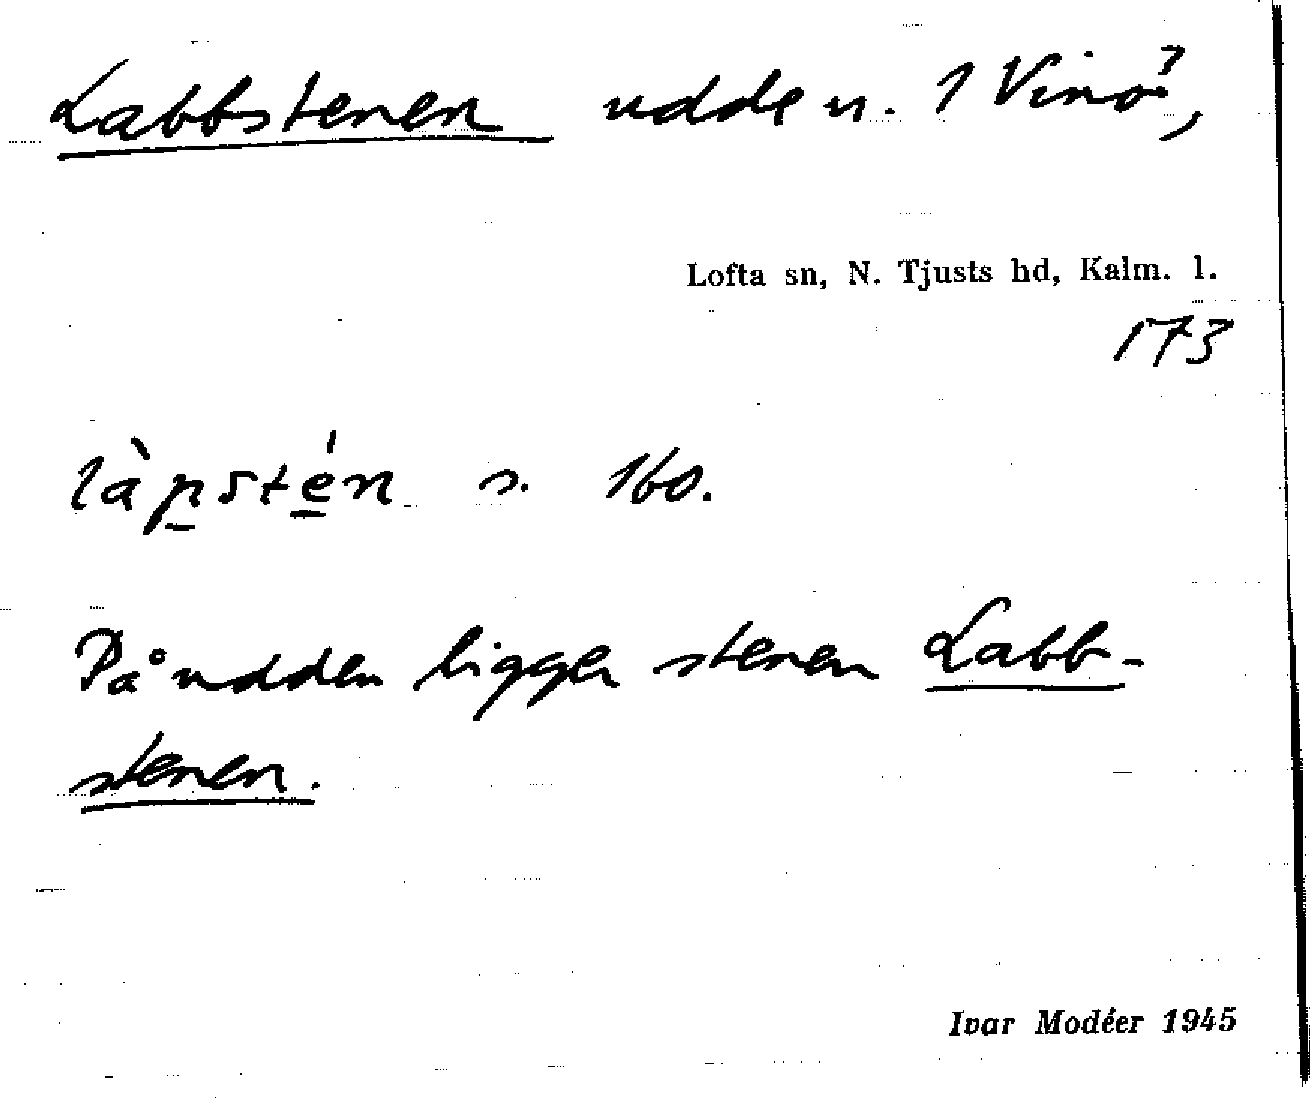 Labbstenen udde n. 1 Vinö?,
Lofta sn, N. Tjusts hd, Kalm. l.
173
làpstén s. 160.
På udden ligger stenen Labb-
stenen.
Ivar Modéer 1945